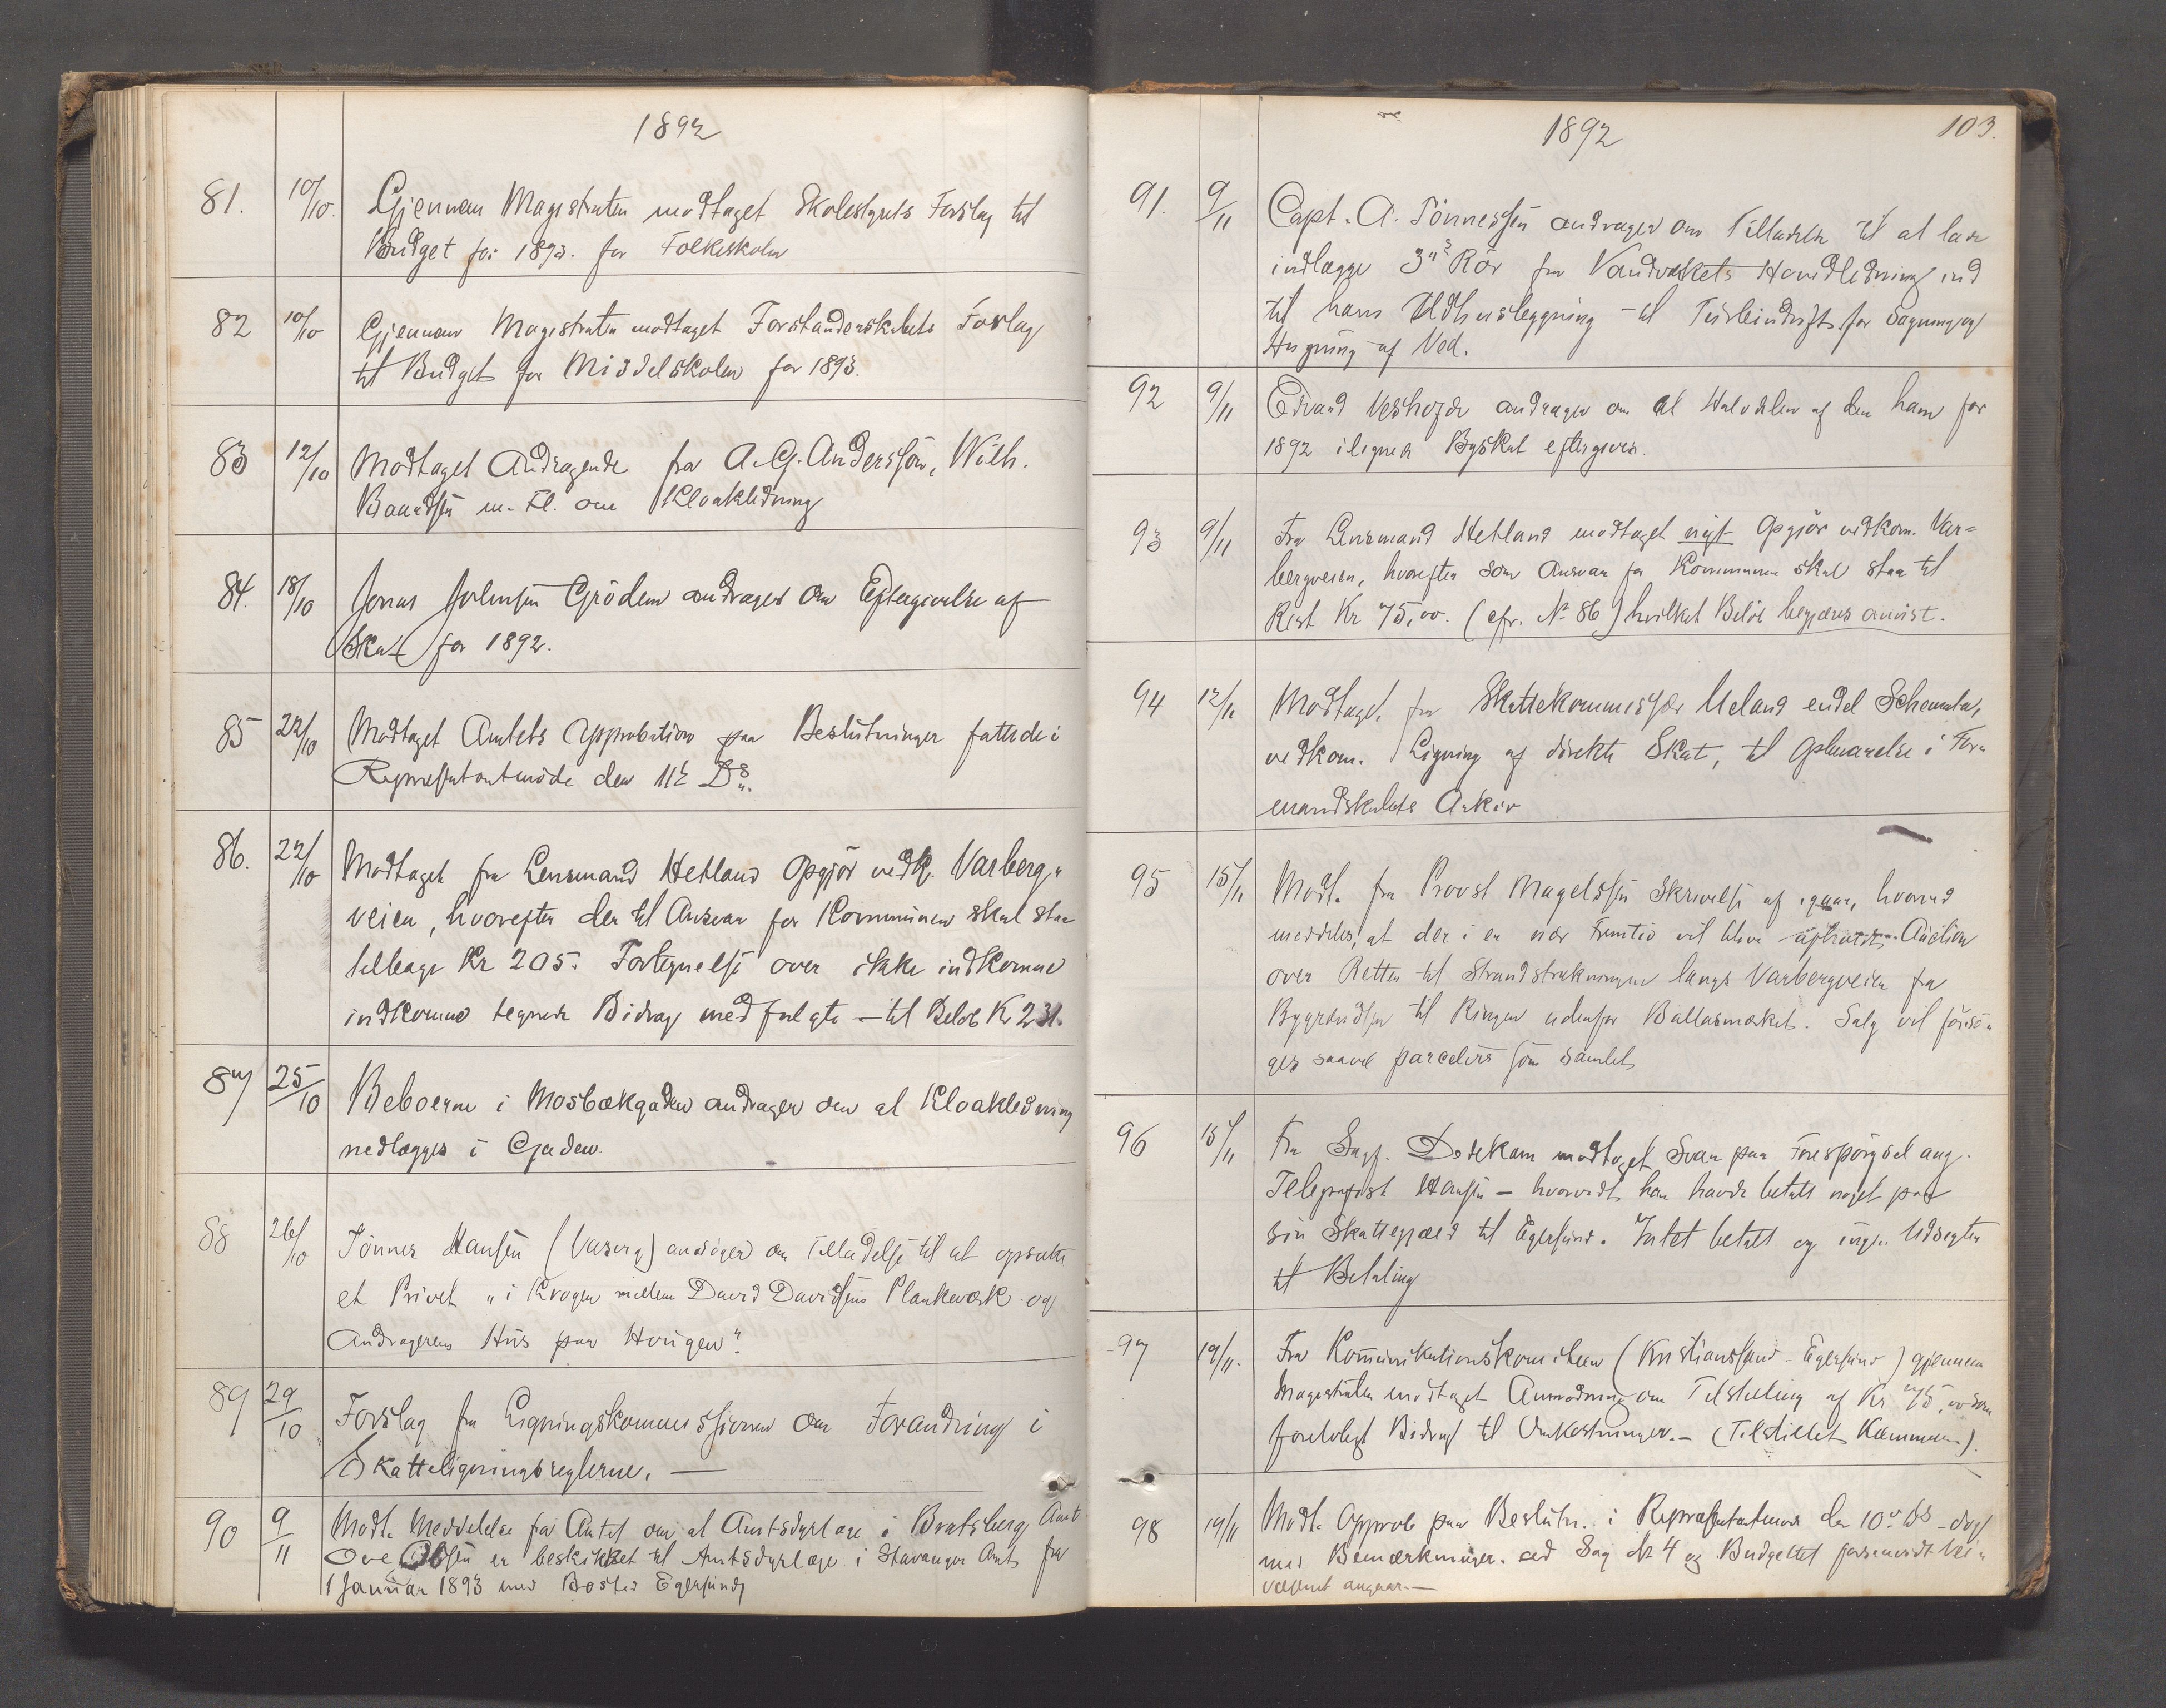 1892
81. 10/10. Gjennem Magistraten modtaget Skolestyrets Forslag til
Budget for 1893. for Folkeskolen
82 10/10 Gjennem Magistraten modtaget Forstanderskabets Forslag
til Budget for Middelskolen for 1893.
83 12/10 Modtaget Andragende fra A. G. Anderssön, Wilh.
Baardsen m. Fl. om Kloakledning
84. 18/10 Jonas Johnsen Gröden andrager om Eftergivelse af
Skat for 1892.
85 22/10 Modtaget Amtets Approbation paa Beslutninger fattede i
Repræsentantmöde den 11te Ds.
86. 22/10 Modtaget fra Lensmand Hetland Opgjör vedk. Varberg-
veien, hvorefter der til Ansvar for Kommunen skal staa
tilbage Kr 205. Fortegnelse over ikke indkomne
indkomne tegnede Bidrag medfulgte – til Belöb Kr 231.
87 25/10 Beboerne i Mosbækgaden andrager om at Kloakledning
nedlægges i Gaden.
88 26/10 Tönnes Hansen (Vaserg) ansöger om Tilladelse til at opsætte
et Privet "i Krogen mellem David Davidsens Plankeværk og
Andragerens Hus paa Hougen".
89 29/10 Forslag fra Ligningskommissionen om Forandring i
Skatteligningsreglerne. —
90 9/11 Modt. Meddelelse fra Amtet om at Amtsdyrlæge i Bratsberg Amt
Ove Olsen er beskikket til Amtsdyrlæge i Stavanger Amt fra
1 Januar 1893 med Bosted Egersund
1892 103.
91. 9/11 Capt. A. Tönnessen andrager om Tilladelse til at lade
indlægge 3" Rör fra Vandværkets Hovedledning ind
til hans Udhusbygning – til Turbindrift for Sagning og
Hugning af Ved.
92 9/11 Edvard Veshovde andrager om at Halvdelen af den ham for
1892 ilignede Byskat eftergives.
93 9/11 Fra Lensmand Hetland modtaget nyt Opgjör vedkom. Var-
bergveien, hvorefter som Ansvar for Kommunen skal staa til
Rest Kr 75,00. (cfr. No 86) hvilket Belöb begjæres anvist.
94 12/11 Modtaget fra Skattekommissær Ueland endel Schemata,
vedkom. Ligning af direkte Skat, til Opbevarelse i For-
mandskabets Arkiv
95 15/11 Modt. fra Provst Magelssen Skrivelse af igaar, hvorved
meddeles, at der i en nær Fremtid vil blive afholdt Auction
over Retten til Strandstrækningen langs Varbergveien fra
Bygrændsen til Ringen udenfor Ballasmærket. Salg vil forsö-
ges saavel parcelvis som samlet.
96 15/11 Fra Sagf. Dosekam modtaget Svar paa Forespörgsel ang.
Telegrafist Hansen – hvorvidt han havde betalt noget paa
sin Skattegjæld til Egersund. Intet betalt og ingen Udsigter
til Betaling
97 19/11. Fra Kommunikationskomiteen (Kristianssand-Egersund) gjennem
Magistraten modtaget Anmodning om Tilstilling af Kr 75,00 som
forelöbigt Bidrag til Omkostninger. – (Tilstillet Kæmneren).
98 19/11 Modt. Approb paa Beslutn. i Repræsentantmöde den 10de Ds – dog
med Bemærkninger ad Sag No 4 og Budgettet forsaavidt Vei-
væsenet angaar. —